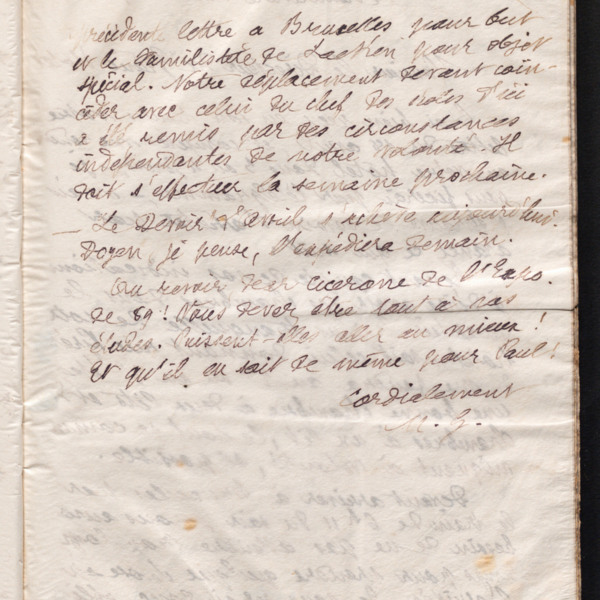 précédente lettre a Bruxelles pour but
et le Familistère de Laeken pour objet
spécial. Notre déplacement devant coïn-
cider avec celui du chef des notes d'ici
a été remis par des circonstances
indépendantes de notre volonté. Il
doit s'effectuer la semaine prochaine.
_ Le Devoir d'avril s'achève aujourd'hui.
Doyen, je pense, l'expédiera demain.
Au revoir dear cicerone de l'Expo.
de 89! Vous devez être tout à vos
études. Puissent-elles aller au mieux!
Et qu'il en soit de même pour Paul!
Cordialement